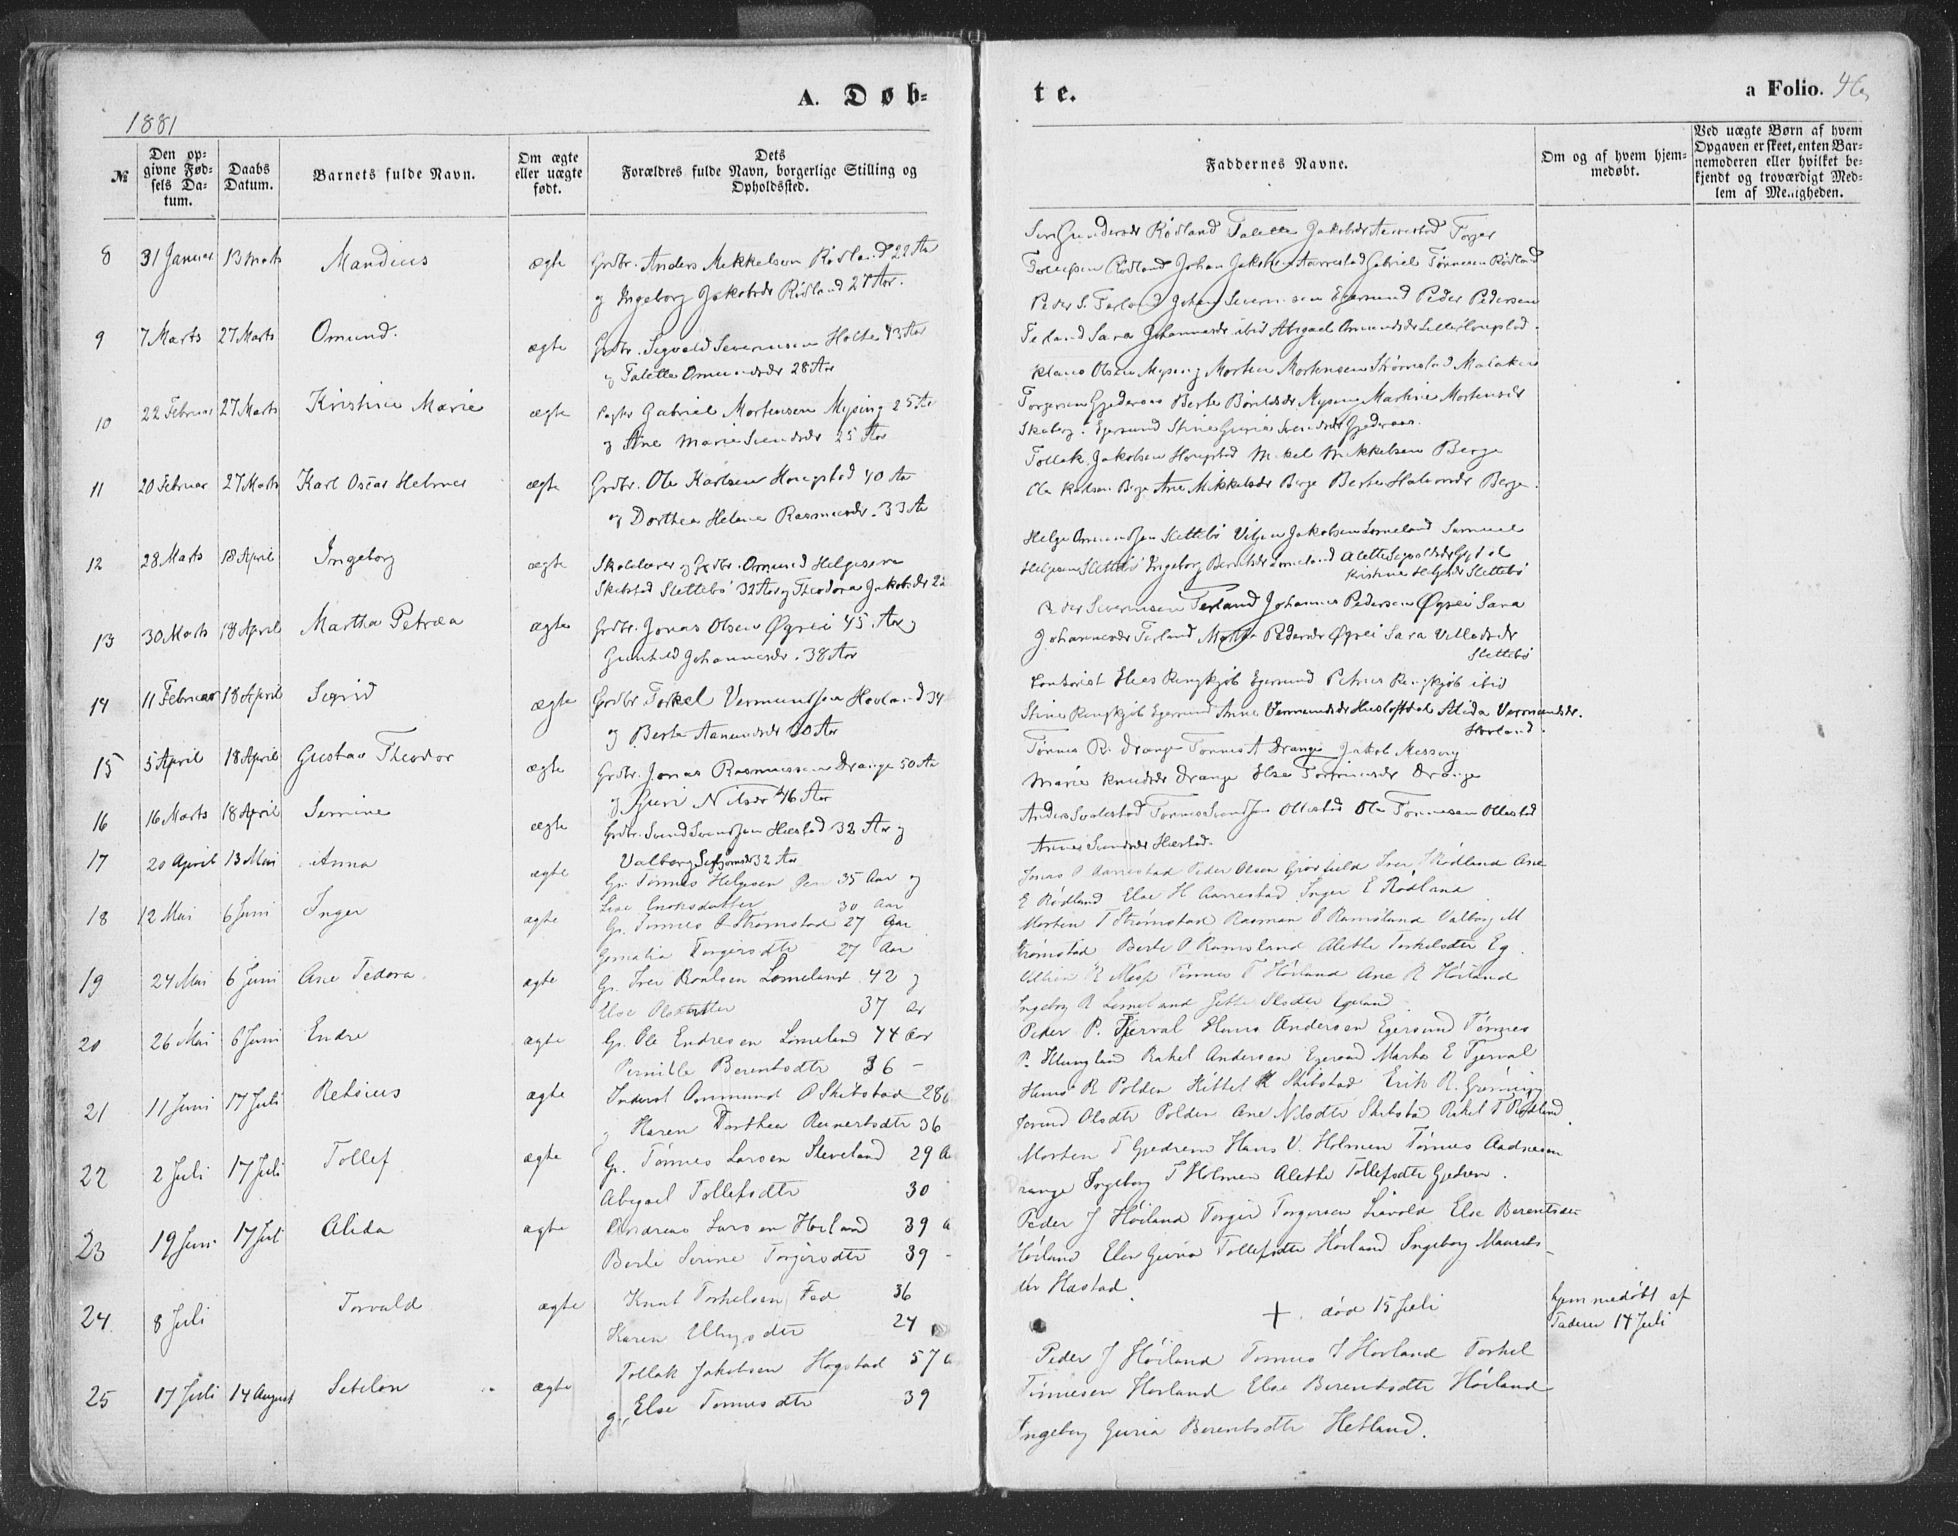 A. Døb-
te.
a Folio. 46
1881
№
Den opgivne Fødsels Datum.
Daabs Datum.
Barnets fulde Navn.
Om ægte eller uægte født.
Dets Forældres fulde Navn, borgerlige Stilling og Opholdssted.
Faddernes Navne.
Om og af hvem hjemmedøbt.
Ved uægte Børn af hvem Opgaven er skeet, enten Barnemoderen eller hvilket bekjendt og troværdigt Medlem af Menigheden.
8 31 Januar 13 Marts Mandius ægte Grdbr. Anders Mikkelsen Rødland 22 Aar
og Ingeborg Jakobsdr Rødland 27 Aar.
Rødland Talette Jakobsdr Aarrestad Torger
Tollefsen Rødland Johan Jakobsen Aarrestad Gabriel Tønnesen Rødland
9 7 Marts 27 Marts Omund. ægte Grdbr. Sigvald Severinsen Holte 43 Aar
og Talette Omundsdr 28 Aar
Peder S. Terland Johan Severinsen Egersund Peder Pedersen
Terland Sara Johannesdr ibid Abigael Omundsdr
10 22 Februar 27 Marts Kristine Marie ægte Gabriel Mortensen Mysing 25 Aar
og Ane Marie Svendsdr 25 Aar
Klaus Olsen Mysing Morten Mortensen Strømstad Malakias
Torgersen Gjederaas Berte Mysing Martine Mortensdr
Skaberg. Egersund Stine Guria Svendsdr Gjederaas.
11 20 Februar 27 Marts Karl Oscar Helmer ægte Grdbr. Ole Karlsen Hougstad 40 Aar
og Dorthea Helene Rasmusdr. 33 Aar
Tollak Jakobsen Hougstad Mikel Mikkelsen Berge
Ole Karlsen Berge Ane Mikkelsdr Berge Berte Berge.
12 28 Marts 18 April Ingeborg ægte Skolelærer og Grdbr. Omund Helgesen
Skibstad Slettebø 32 Aar og Theodora Jakobsdr 22
Helge Omundsen Slettebø Jakobsen Lomeland Samuel
Helgesen Slettebø Ingeborg Berntsdr Lomeland Alette Sigvaldsdr
Kristine Helgesdr Slettebø
13 30 Marts 18 April Martha Petræa ægte Grdbr. Jonas Olsen Øgrei 45 Aar og
Gunhild Johannesdr. 38 Aar
Peder Severinsen Terland Johannes Pedersen Øgrei Sara
Johannesdr Terland Pedersdr Øgrei Sara Villadsdr
Slettebø
14 11 Februar 18 April Sigrid ægte Grdbr Torkel Vermundsen Hovland 34
og Berte Aanundsdr 30 Aar
Elias Ringkjøb Egersund Petrus Ringkjøb ibid
Stine Ringkjøb Egersund Anne Vermundsdr Alida Vermundsdr.
Hovland.
15 5 April 18 April Gustav Theodor ægte Grdbr. Jonas Rasmussen Drange 50 Aar
og Guri Nilsdr 46 Aar
Tønnes R. Drange Tønnes A Drange Jakob Messing
Marie Knudsdr Drange Else Tønnesdr Drange
16 16 Marts 18 April Semine ægte Grdbr. Svend Svendsen Hæstad 32 Aar og
Valborg 32 Aar
Anders Svalestad Tønnes Svendsen Ollestad Ole Tønnesen Ollestad
Anne Svendsdr Hæstad.
17 20 April 13 Mai Anna ægte Gr. Tønnes Helgesen 35 Aar og
Lise Enoksdatter 30 Aar
Jonas P Aarrestad Peder Olsen Iver Rødland Ane
E Rødland Else H Aarrestad Inger E Rødland
18 12 Mai 6 Juni Inger ægte Gr. Tønnes O Strømstad 27 Aar
Torgersdtr 27 Aar
Morten T Strømstad Rasman O Ramsland Valborg M
Strømstad Berte O Ramsland Alette Torkelsdtr Eg.
19 24 Mai 6 Juni Ane Tedora. ægte Gr. Iver Lomeland 42 og
Else Olsdatter 37 Ar
R Tønnes T Høiland Ane R Høiland
Ingeborg R Lomeland
20 26 Mai 6 Juni Endre ægte Gr. Ole Endresen Lomeland 44 Aar
Pernille Berentsdtr 36 -
Peder P. Tjerval Hans Andersen Egersund Tønnes
P. Rakel Andersen Egersund Martha E Tjerval
21 11 Juni 17 Juli Retsius ægte Inderst Ommund O Skibstad 28
og Karen Dorthea Reinertsdtr 36
Hans R Polden Kittel K Skibstad Erik R. Grøning
Jorind Olsdtr Polden Ane Nilsdtr Skibstad Rakel T Rødland.
22 2 Juli 17 Juli Tollef ægte Gr. Tønnes Larsen Steveland 29 A
Abigael Tollefsdtr 30
Morten T Gjedrem Hans V. Holmen Tønnes Aadnesen
Drange Ingeborg T Holmen Alethe Tollefsdtr Gjedrem.
23 19 Juni 17 Juli Alida ægte Andreas Larsen Hovland 39 A
Berte Serine Torjersdtr 39 -
Peder J Høiland Torger Torgersen Liavold Else Berentsdtr
Høiland Elen Guria Tollefsdtr Høiland Ingeborg Maurits-
dtr Hæstad.
24 8 Juli Torvald ægte Knut Torkelsen Fed 36
Karen 24
+. død 15 Juli
hjemmedøbt af
Faderen 14 Juli
25 17 Juli 14 August Setelon ægte Tollak Jakobsen Hogstad 57 A
g. Else Tønnesdtr 39
Peder J Høiland Tønnes T Hovland Torkel
Tønnesen Hovland Else Berentsdtr Høiland
Ingeborg Guria Berentsdtr Hetland.